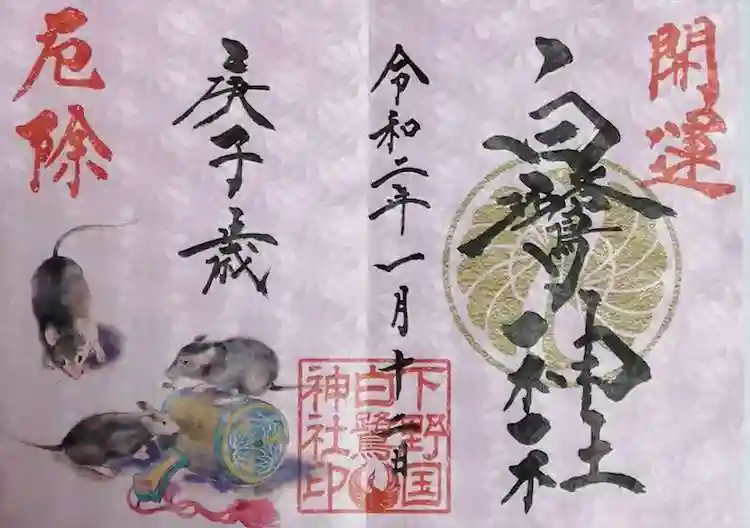 開運
白鷺神社
令和二年一月十二日
庚子歳
厄除
下野国
白鷺
神社印